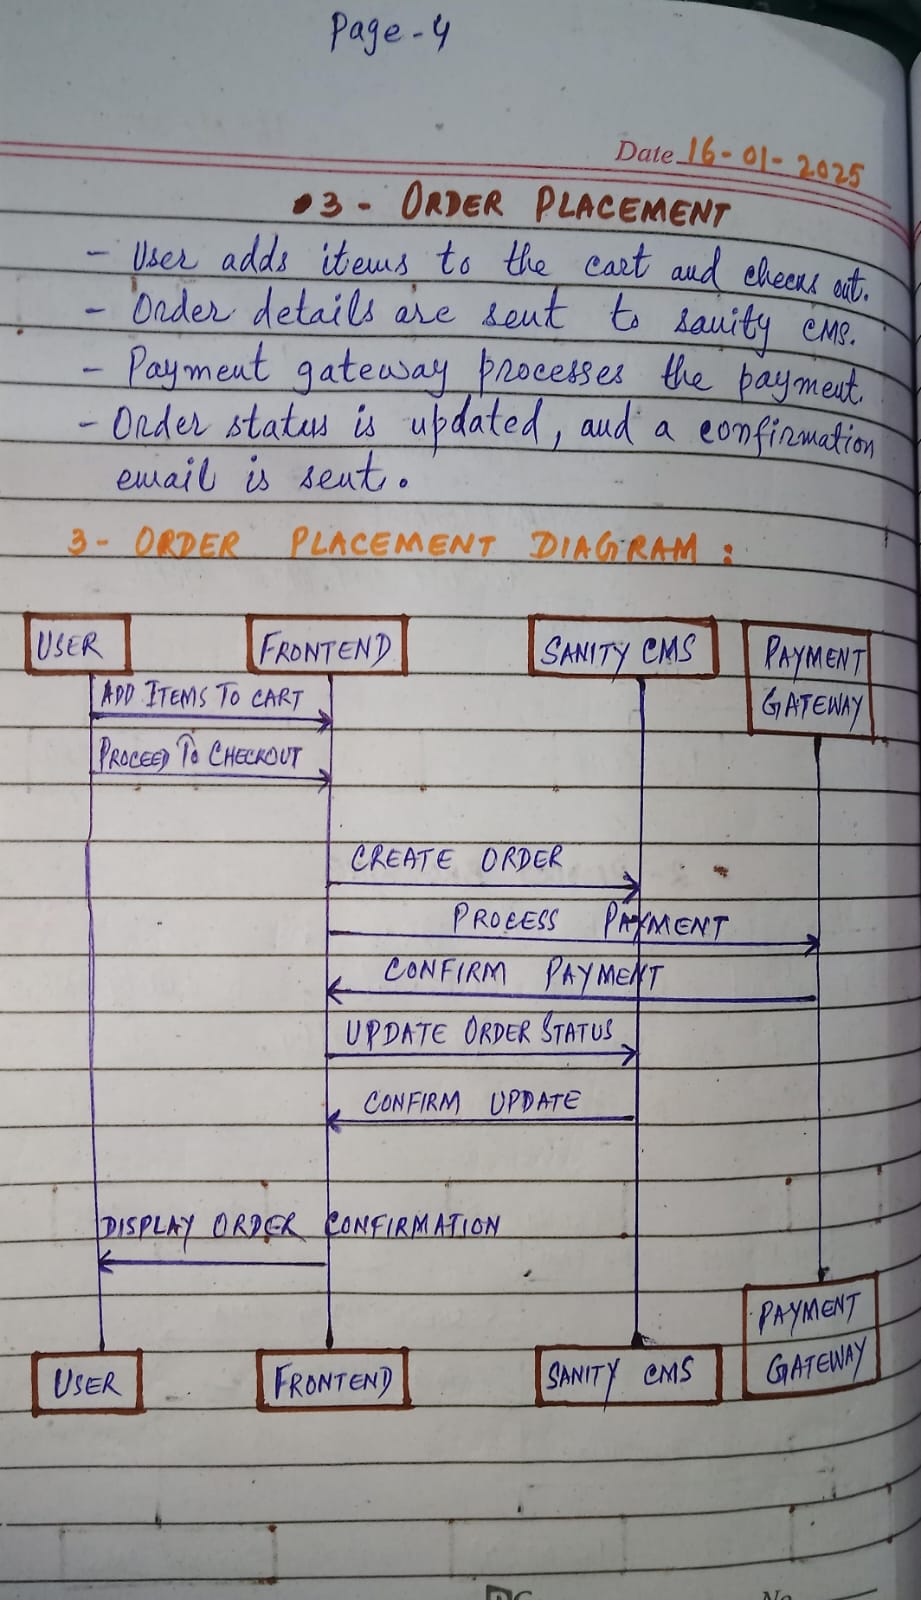 Page-4
Date 16-01-2025
•3- ORDER PLACEMENT
- User adds items to the cart and checks out.
- Order details are sent to sanity CMS.
- Payment gateway processes the payment.
- Order status is updated, and a confirmation
email is sent.
3- ORDER PLACEMENT DIAGRAM :
USER FRONTEND SANITY CMS PAYMENT GATEWAY
ADD ITEMS TO CART
PROCEED TO CHECKOUT
CREATE ORDER
PROCESS PAYMENT
CONFIRM PAYMENT
UPDATE ORDER STATUS
CONFIRM UPDATE
DISPLAY ORDER CONFIRMATION
USER FRONTEND SANITY CMS PAYMENT GATEWAY